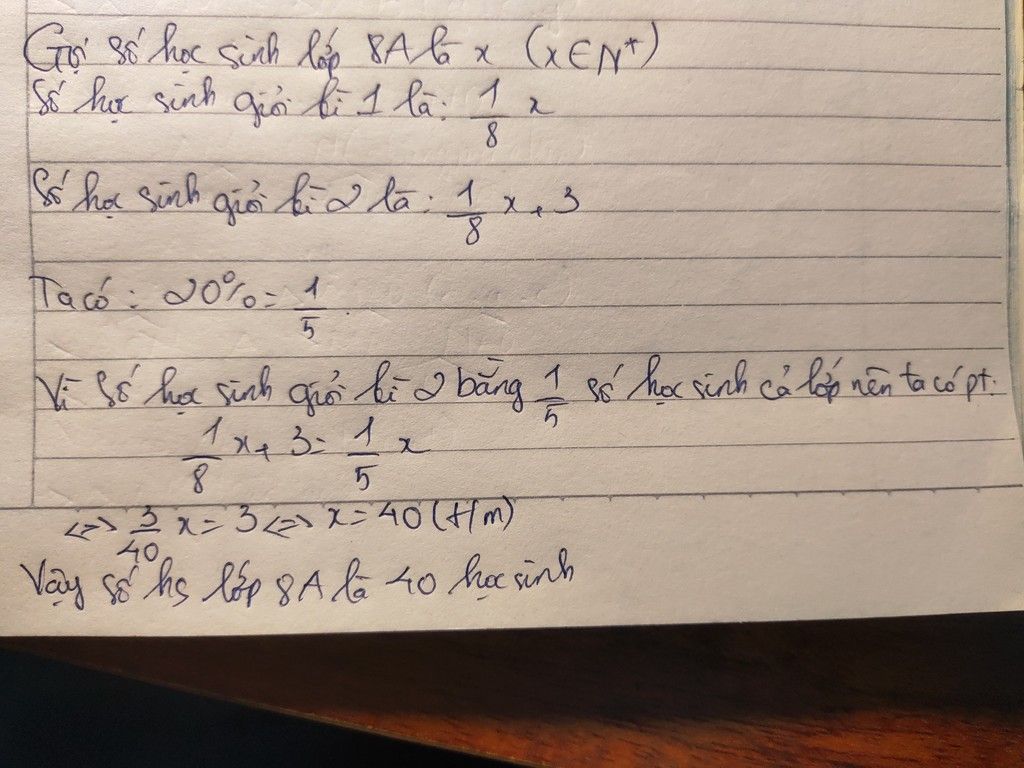 Gọi số học sinh lớp 8A là x (x∈N*)
Số học sinh giỏi kì 1 là: 1/8 x
Số học sinh giỏi kì 2 là: 1/8 x + 3
Ta có: 20% = 1/5.
Vì số học sinh giỏi kì 2 bằng 1/5 số học sinh cả lớp nên ta có pt:
1/8 x + 3 = 1/5 x
<=> 3/40 x = 3 <=> x = 40 (t/m)
Vậy số hs lớp 8A là 40 học sinh